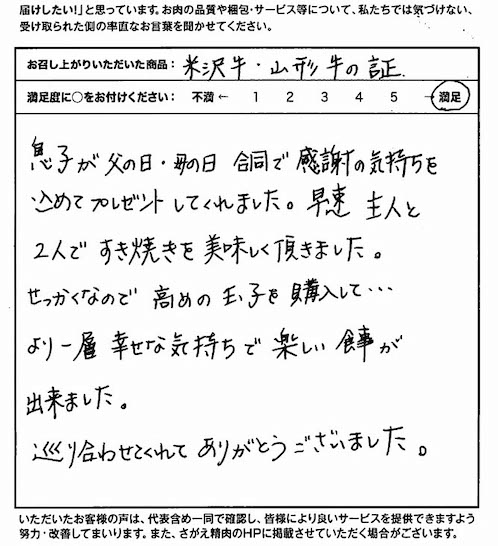 届けしたい!」と思っています。お肉の品質や梱包・サービス等について、私たちでは気づけない、
受け取られた側の率直なお言葉を聞かせてください。
お召し上がりいただいた商品: 米沢牛・山形牛の証
満足度に○をお付けください: 不満 ← 1 2 3 4 5 → 満足
息子が父の日・母の日 合同で 感謝の気持ちを
込めてプレゼントしてくれました。早速 主人と
2人で すき焼きを美味しく頂きました。
せっかくなので 高めの玉子を購入して…
より一層 幸せな気持ちで 楽しい 食事が
出来ました。
巡り合わせてくれて ありがとうございました。
いただいたお客様の声は、代表含め一同で確認し、皆様により良いサービスを提供できますよう
努力・改善してまいります。また、さがえ精肉のHPに掲載させていただく場合がございます。